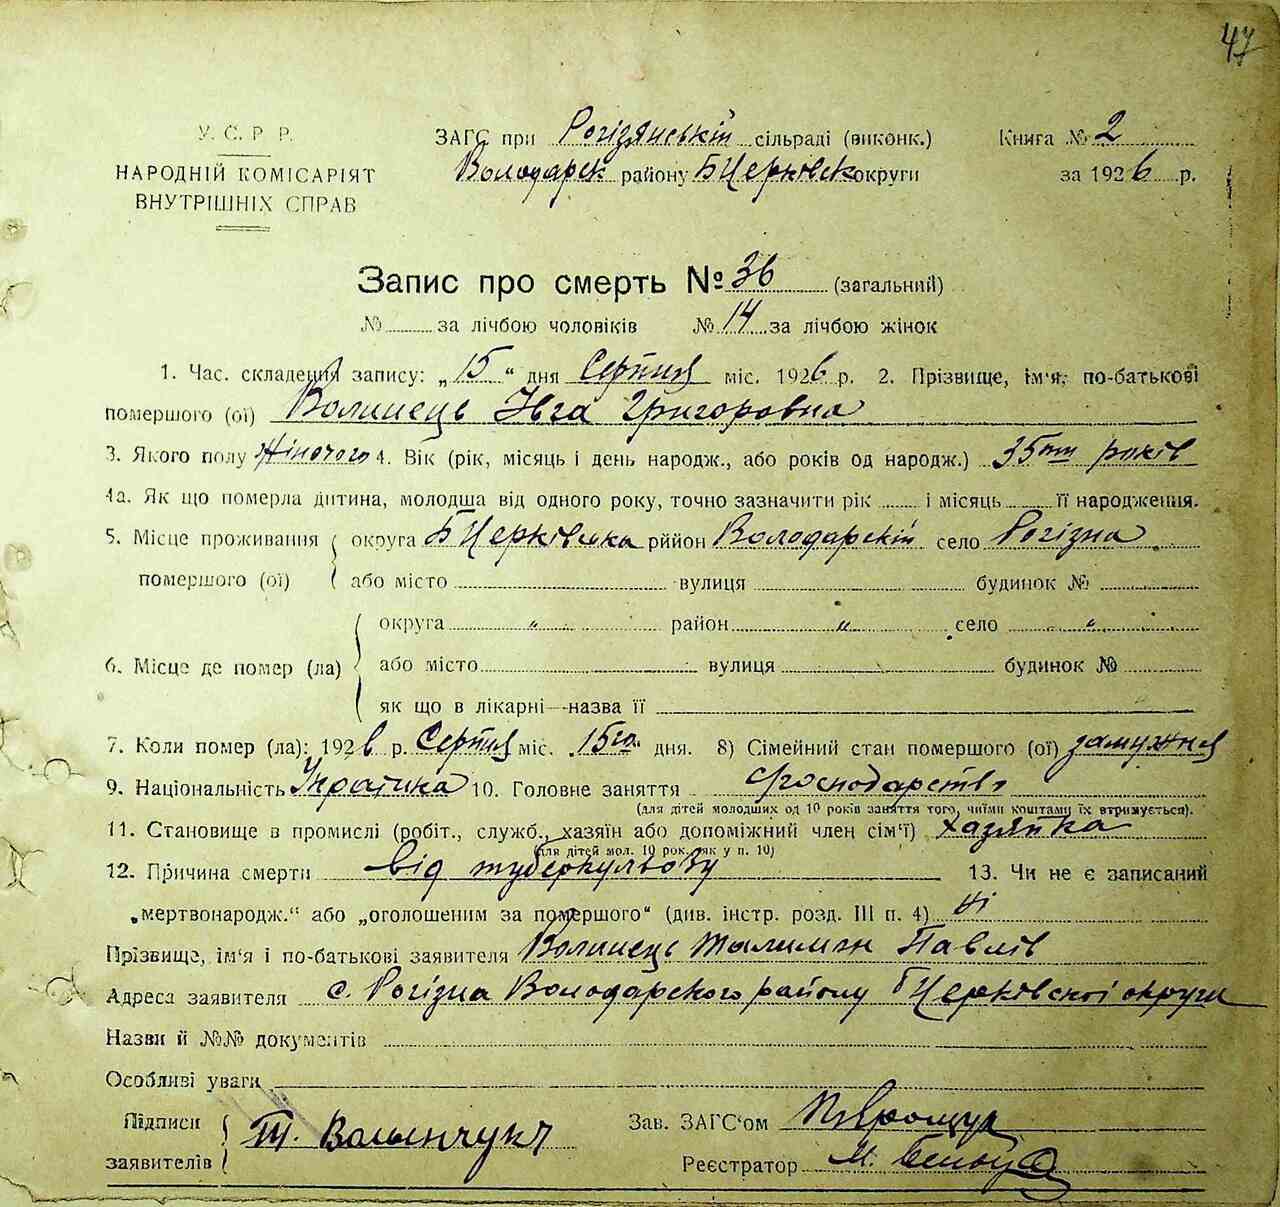 47
У. С. Р. Р.
НАРОДНІЙ КОМІСАРІЯТ
ВНУТРІШНІХ СПРАВ
ЗАГС при Рогізянській сільраді (виконк.)
Володарск району БЦерківськ округи
Книга № 2
за 1926 р.
Запис про смерть № 36 (загальний)
№ за лічбою чоловіків № 14 за лічбою жінок
1. Час. складення запису: „15“ дня Серпня міс. 1926 р. 2. Прізвище, ім'я, по-батькові
помершого (ої) Волинець Ївга Григоровна
3. Якого полу Жіночого 4. Вік (рік, місяць і день народж., або років од народж.) 35ти років
4а. Як що померла дитина, молодша від одного року, точно зазначити рік і місяць її народження.
5. Місце проживання помершого (ої) округа БЦерківська рййон Володарскій село Рогізна
або місто вулиця будинок №
6. Місце де помер (ла) округа " район " село "
або місто вулиця будинок №
як що в лікарні—назва її
7. Коли помер (ла): 1926 р. Серпня міс. 15го дня. 8) Сімейний стан помершого (ої) замужня
9. Національність Українка 10. Головне заняття господарство
(для дітей молодших од 10 років заняття того, чиїми коштами їх втримується).
11. Становище в промислі (робіт., служб., хазяїн або допоміжний член сім'ї) хазяйка
(для дітей мол. 10 рок. як у п. 10)
12. Причина смерти від туберкульозу 13. Чи не є записаний
„мертвонародж.“ або „оголошеним за помершого“ (див. інстр. розд. III п. 4) ні
Прізвище, ім'я і по-батькові заявителя Волинець Талимон Павлів
Адреса заявителя с. Рогізна Володарского району БЦерківскої округи
Назви й №№ документів
Особливі уваги
Підписи заявителів Т. Волынчукъ
Зав. ЗАГС'ом
Реєстратор М.